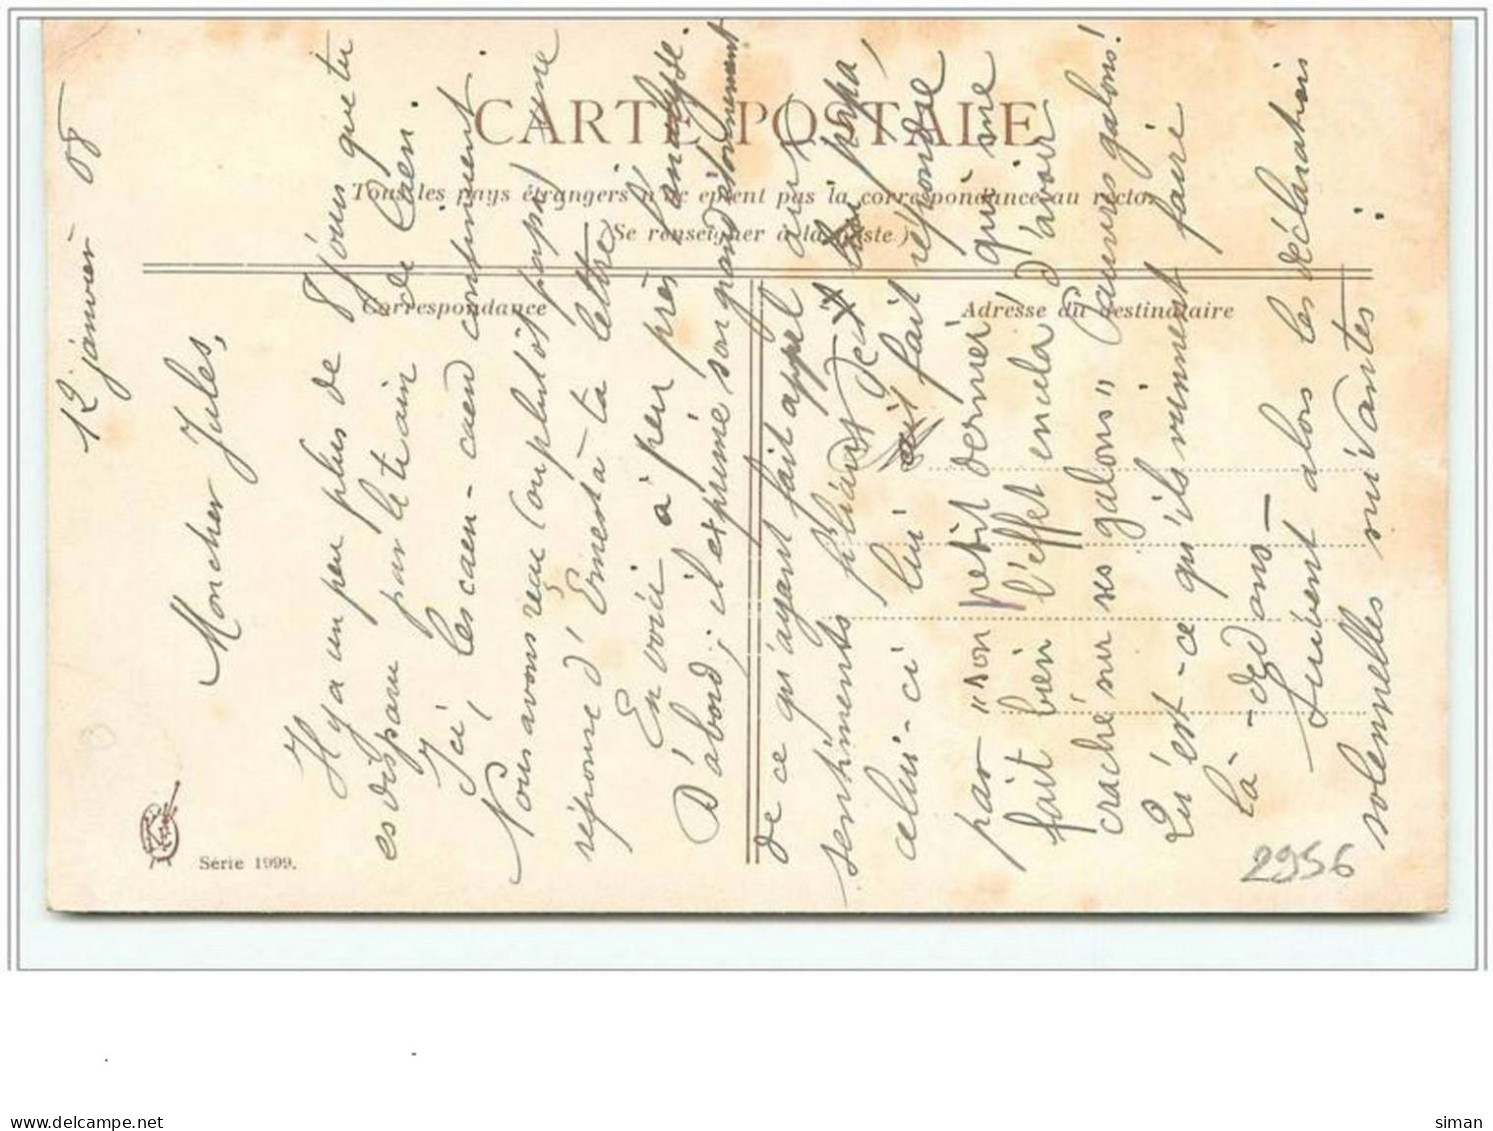 CARTE POSTALE
Tous les pays étrangers n'acceptent pas la correspondance au recto.
(Se renseigner à la poste.)
Correspondance
Adresse du destinataire
12 janvier 08
Mon cher Jules,
Il y a un peu plus de 8 jours que tu
es disparu par le train de Caen.
Ici, les caen-caen continuent.
Nous avons reçu ou plutôt papa, une
réponse d'Ernest à ta lettre
En voici à peu près l'analyse.
D'abord, il exprime son grand étonnement
de ce qu'ayant fait appel aux
sentiments filiaux de chez papa,
celui-ci lui ait fait répondre
par "son petit dernier" qui me
fait bien l'effet enculé d'avoir
craché sur ses galons" Pauvres galons!
Qu'est-ce qu'ils viennent faire
là-dedans -
Suivent alors les déclarations
solennelles suivantes :
Série 1999.
2956
www.delcampe.net
siman